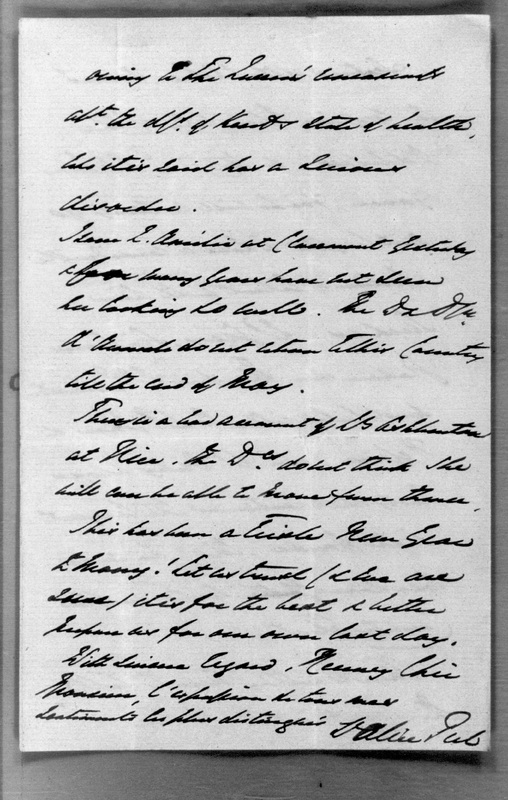 owing to the Queen's uneasiness
abt. the Dss. of Kent's state of health,
who it is said has a serious
disorder.
I saw Q. Amélie at Claremont yesterday
& for many years have not seen
her looking so well. The Dc & Dss.
d'Aumale do not return to this Country
till the end of May.
There is a bad account of Ly Ashburton
at Nice. The Drs do not think she
will ever be able to move from thence.
This has been a terrible New Year
to many! Let us trust (& we are
sure) it is for the best & better
prepare us for our own last day.
With sincere regard, Recevez Cher
Monsieur, l'expression de tous mes
sentiments les plus distingués